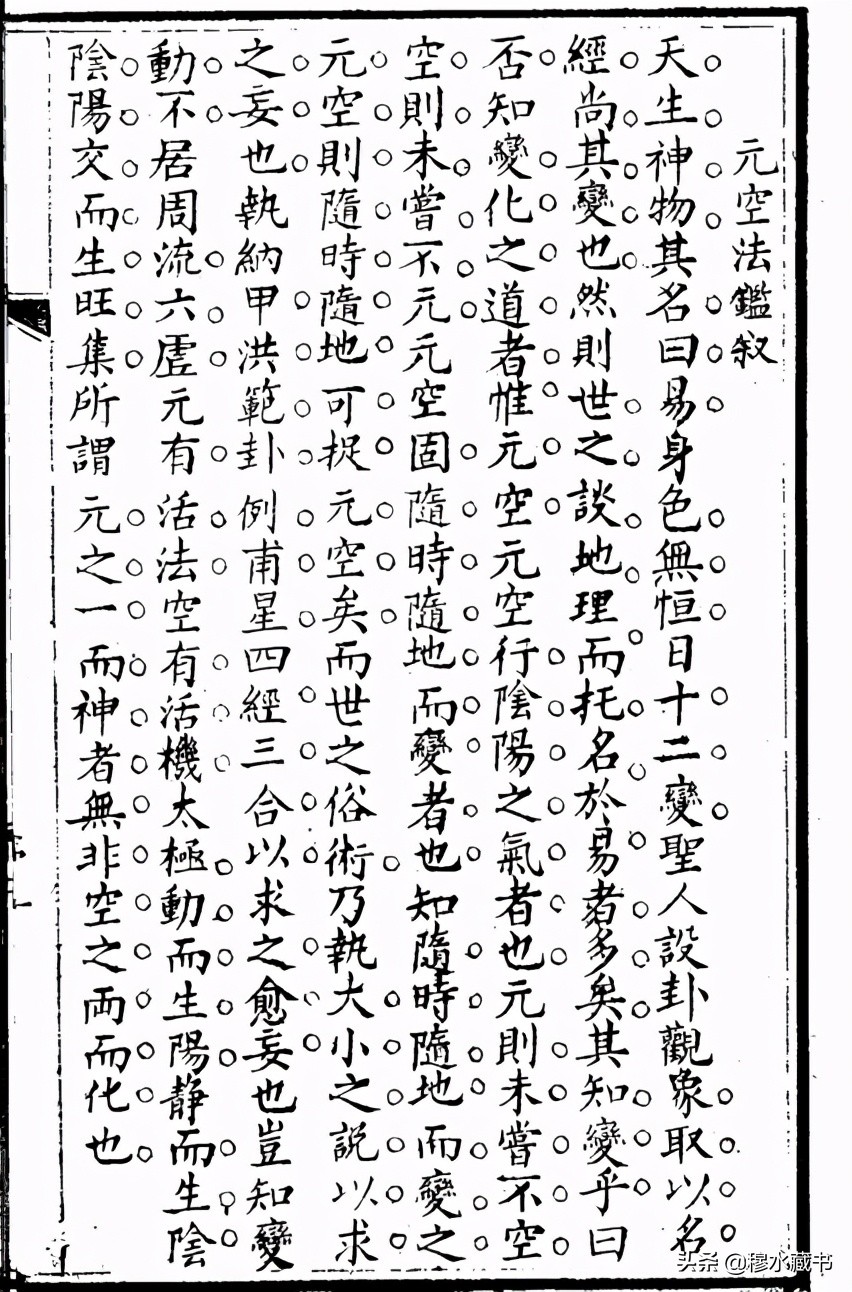 元空法鑑敘
天生神物其名曰易身色無恒日十二變聖人設卦觀象取以名
經尚其變也然則世之談地理而托名於易者多矣其知變乎曰
否知變化之道者惟元空元空行陰陽之氣者也元則未嘗不空
空則未嘗不元元空固隨時隨地而變者也知隨時隨地而變之
元空則隨時隨地可捉元空矣而世之俗術乃執大小之說以求
之妄也執納甲洪範卦例甫星四經三合以求之愈妄也豈知變
動不居周流六虛元有活法空有活機太極動而生陽靜而生陰
陰陽交而生旺集所謂元之一而神者無非空之両而化也
头条 @穆水藏书